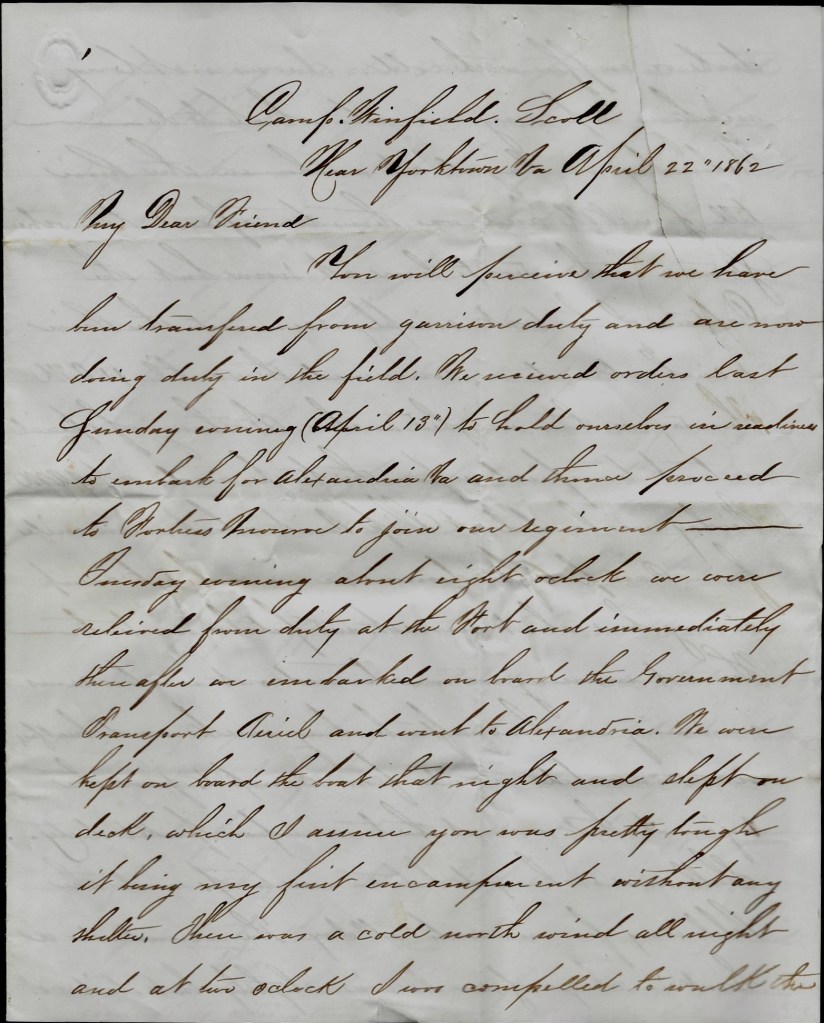 Camp. Winfield. Scott
Near Yorktown Va April 22" 1862
My Dear Friend
You will perceive that we have
been transfered from garrison duty and are now
doing duty in the field. We recieved orders last
Sunday evening (April 13") to hold ourselves in readiness
to embark for Alexandria Va and thence proceed
to Fortress Monroe to join our regiment —
Tuesday evening about eight oclock we were
releived from duty at the Fort and immediately
thereafter we embarked on board the Government
Transport Ariel and went to Alexandria. We were
kept on board the boat that night and slept on
deck, which I assure you was pretty tough
it being my first encampment without any
shelter. There was a cold north wind all night
and at two oclock I was compelled to walk the